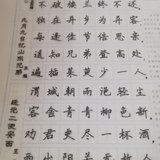 不破楼兰终不还
九月九日忆山东兄弟 王
独在异乡为异客
每逢佳节倍思亲
遥知兄弟登高处
遍插茱萸少一人
送元二使安西 王
渭城朝雨浥轻尘
客舍青青柳色新
劝君更尽一杯酒
西出阳关无故人